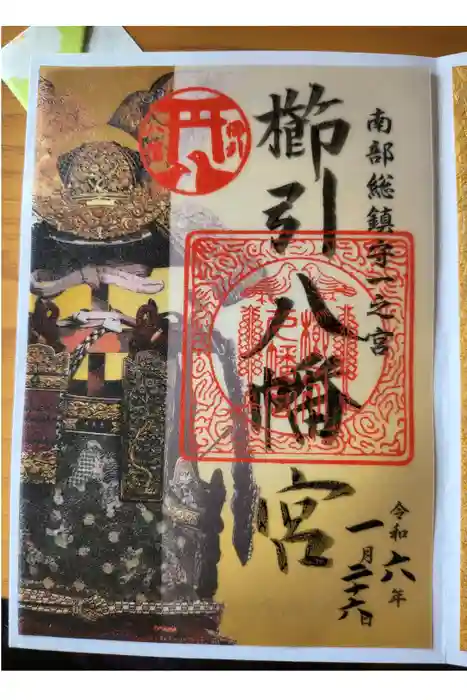 南部総鎮守一之宮
櫛引八幡宮
令和六年
一月二十六日